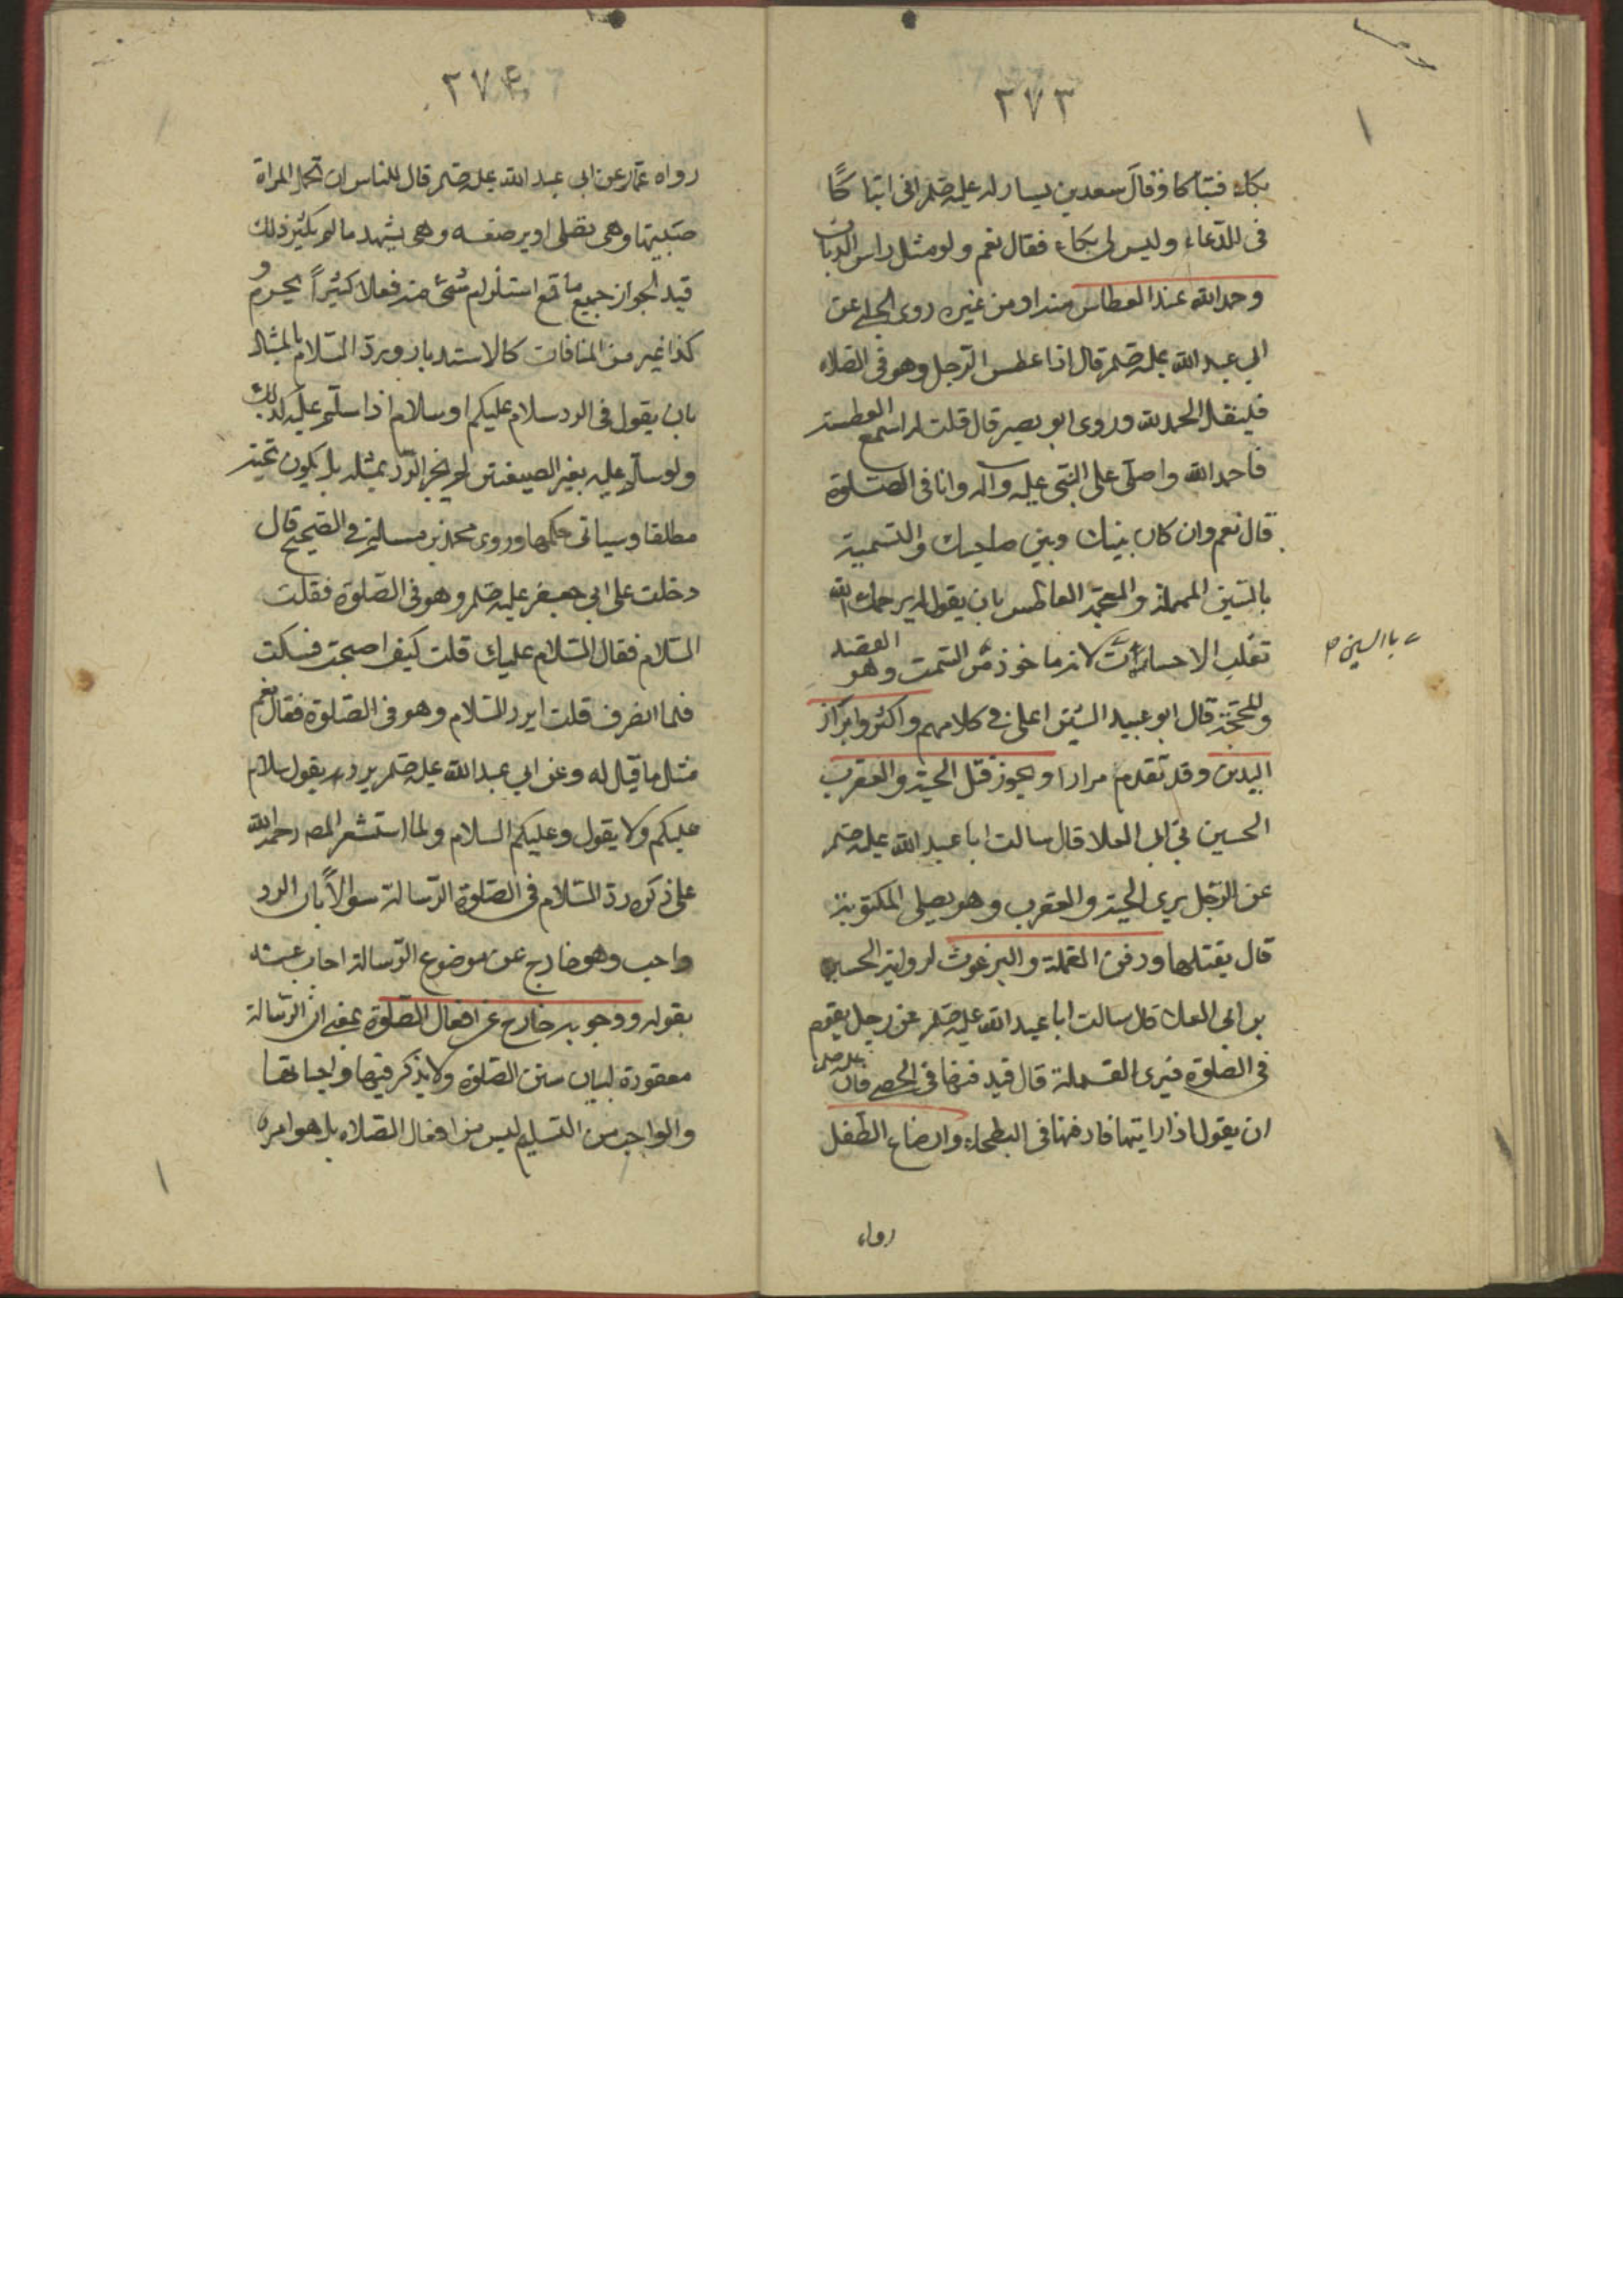 ٢٧٣
بكاء فتباكا وقال سعد بن يسار له عليه صلم اني اتباكا
في الدعاء وليس لي بكاء فقال نعم ولو مثل راس الذباب
وحمد الله عند العطاس منه او من غيره روى الحلبي عن
ابي عبد الله عليه صلم قال اذا عطس الرجل وهو في الصلاه
فليقل الحمد لله وروى ابو بصير قال قلت له اسمع العطسة
فاحمد الله واصلى على النبى عليه وآله وانا في الصلوة
قال نعم وان كان بينك وبين صاحبك والتسمية
بالسين المهملة والمعجمة العاطس بان يقول له يرحمك الله
تغلب الاحسا لانه ماخوذ من السمت وهو القصد
والمحجة قال ابو عبيد الشين اعلى في كلامهم واكثر وابراز
اليدين وقد تقدم مرارا ويجوز قتل الحية والعقرب
الحسين بن ابي العلا قال سالت ابا عبد الله عليه صلم
عن الرجل يرى الحية والعقرب وهو يصلى المكتوبة
قال يقتلهما ودفن القملة والبرغوث لرواية الحسين
بن ابي العلا قال سالت ابا عبد الله عليه صلم عن رجل يقوم
في الصلوة فيرى القملة قال فيدفنها في الحصى فان عليه صلم
ان يقول اذا رايتها فادفنها في البطحاء وارضاع الطفل
رواه
باالسين م
٢٧٤
رواه عمار عن ابي عبد الله عليه صلم قال للناس ان تحمل المراة
صبيتها وهي تصلى او يرضعه وهي يشهد ما لم يكثر ذلك
قيد لجواز جميع ما مع استلزام شئ منه فعلا كثيراً يحرم و
كذا غير من المنافات كالاستدبار ويرد السلام بالمثال
بان يقول في الرد سلام عليكم او سلام اذا سلم عليه كذلك
ولو سلم عليه بغير الصيغتين لم يجز الرد بمثله بل يكون تحية
مطلقا وسياتى حكمها وروى محمد بن مسلم في الصحيح قال
دخلت على ابي جعفر عليه صلم وهو في الصلوة فقلت
السلام فقال السلام عليك قلت كيف اصبحت فسكت
فلما انصرف قلت ايرد السلام وهو في الصلوة فقال نعم
مثل ما قيل له وعن ابي عبد الله عليه صلم يرد يقول سلام
عليكم ولا يقول وعليكم السلام ولما استشعر المصه رحمه الله
على ذكره رد السلام في الصلوة الرسالة سؤالاً بان الرد
واجب وهو خارج عن موضوع الرسالة اجاب عنه
بقوله ووجوبه خارج عن افعال الصلوة بمعنى ان الرسالة
معقودة لبيان سنن الصلوة ولا يذكر فيها واجباتها
والواجب من التسليم ليس من افعال الصلاه بل هو امره